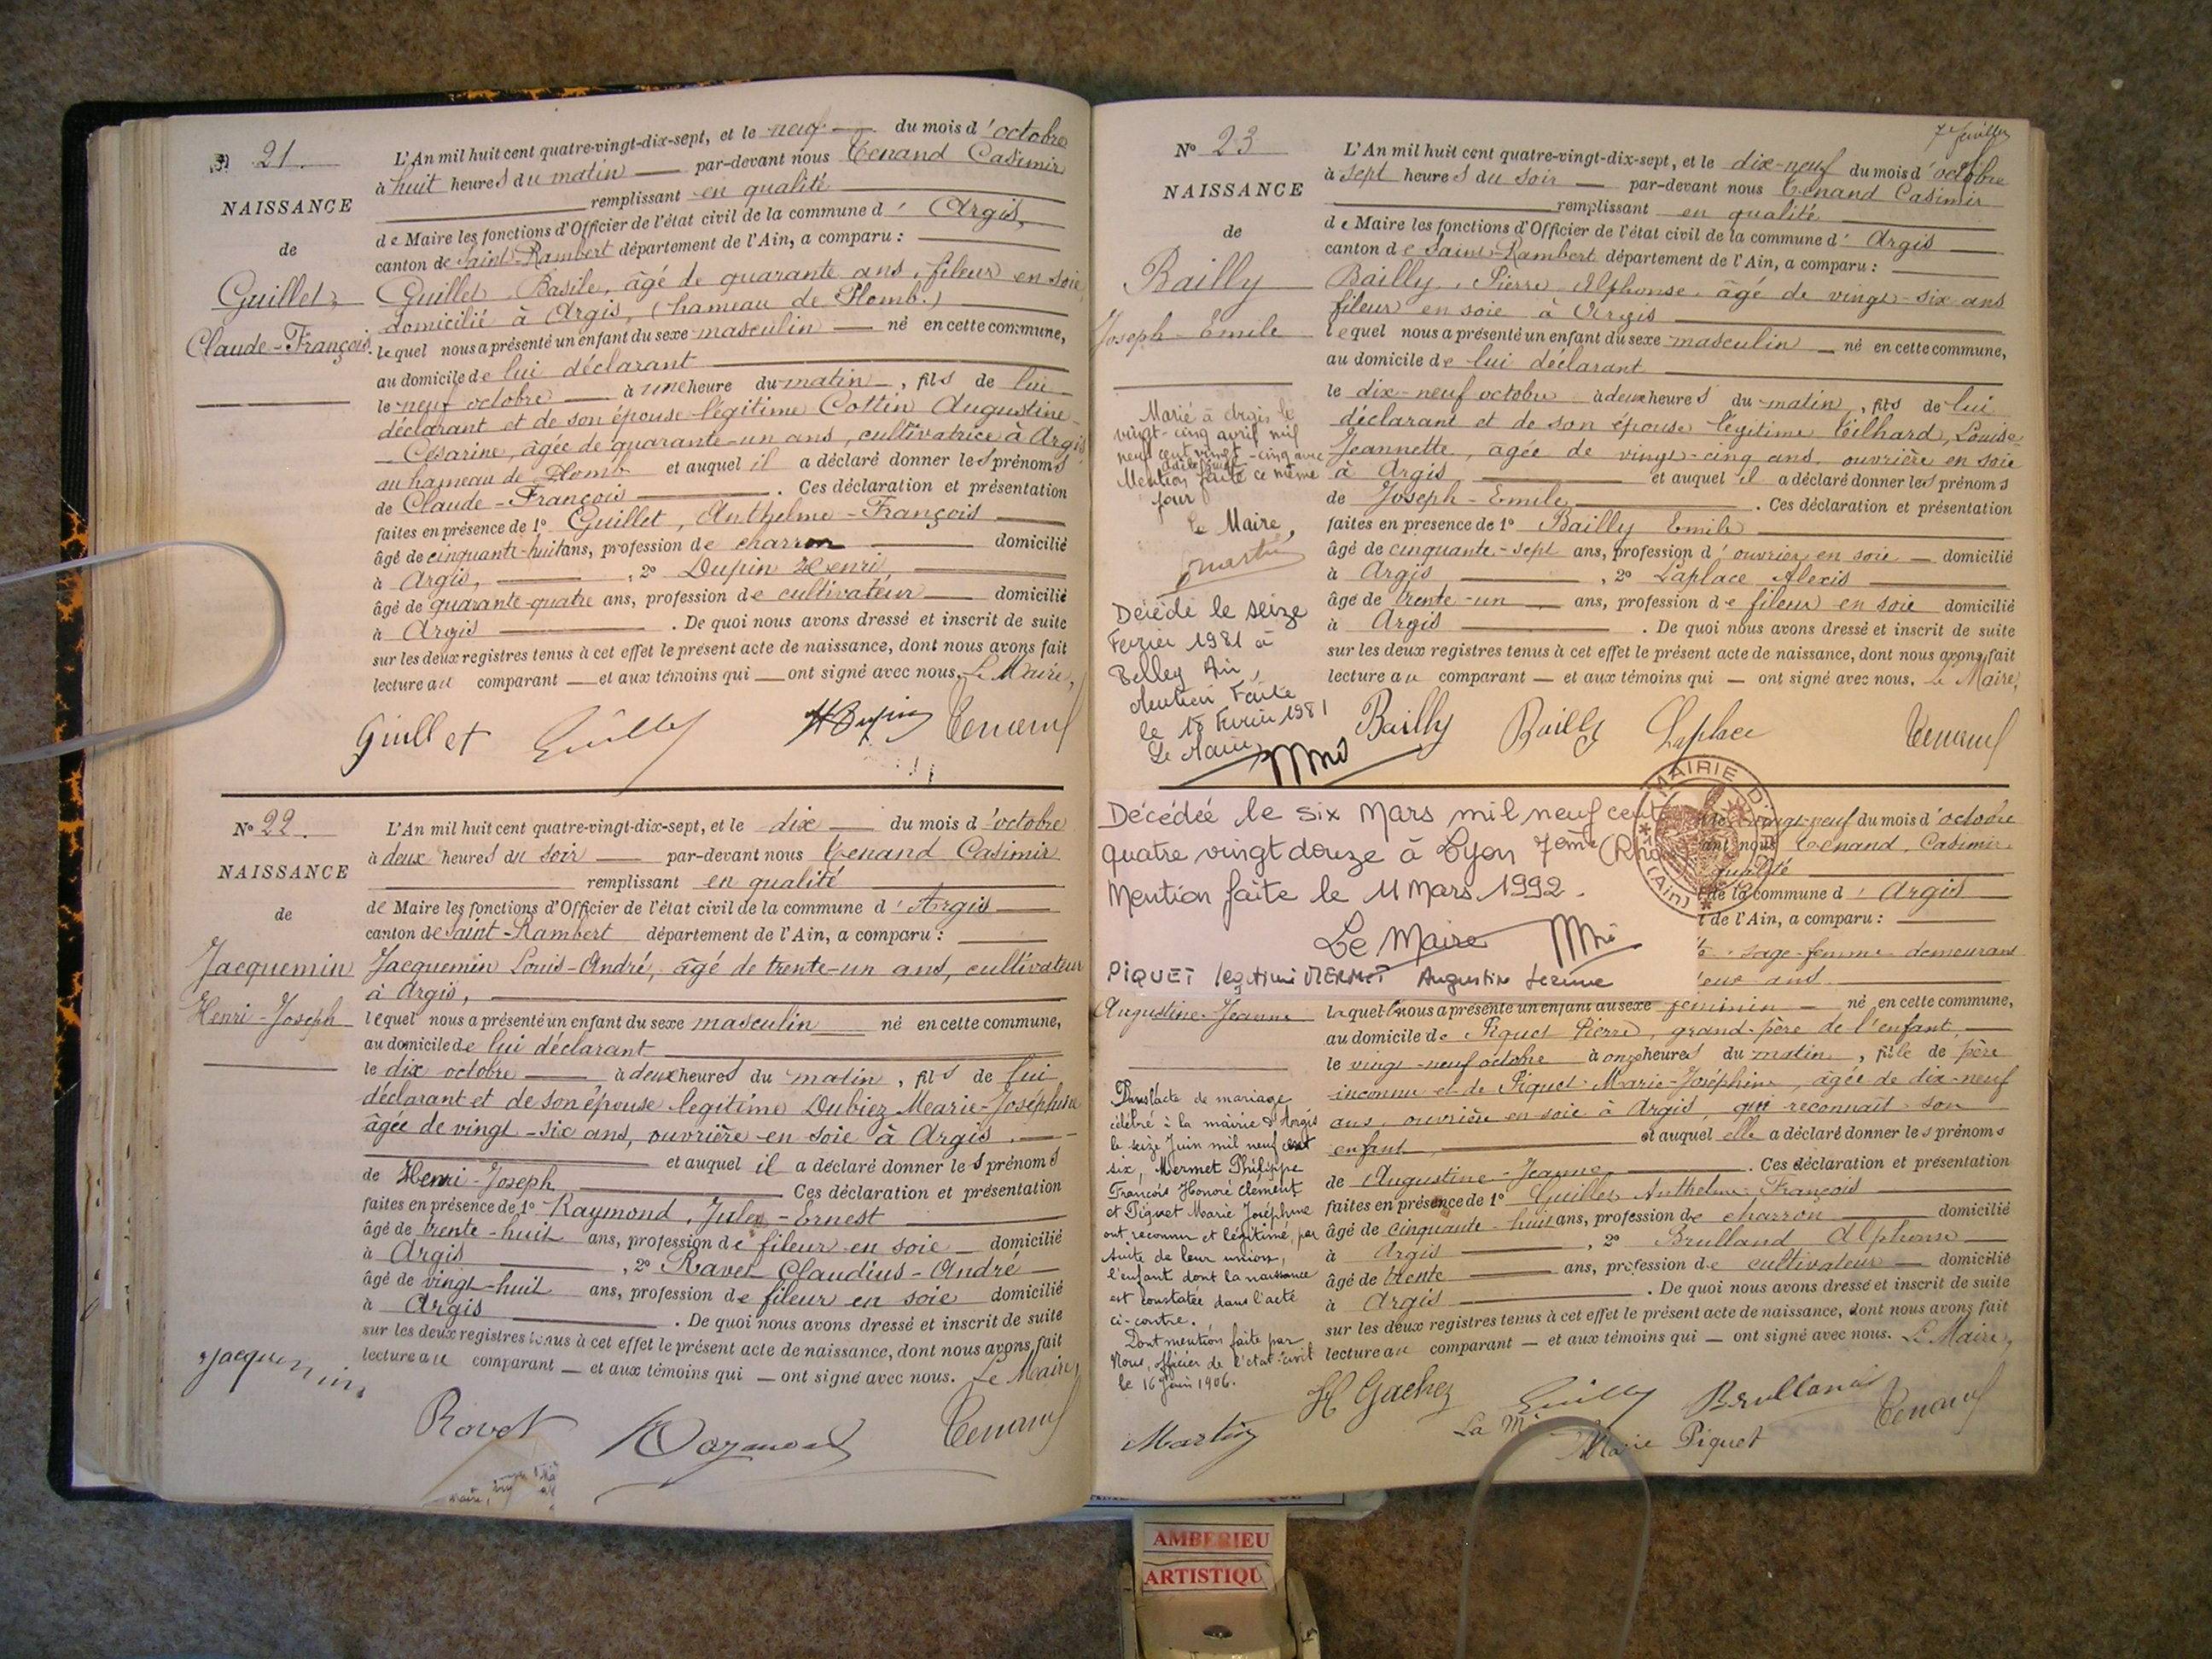 N° 21
NAISSANCE
de
Guillet
Claude-François
L'An mil huit cent quatre-vingt-dix-sept, et le neuf du mois d'octobre
à huit heures du matin par-devant nous Tenand Casimir
remplissant en qualité
de Maire les fonctions d'Officier de l'état civil de la commune d'Argis,
canton de Saint-Rambert département de l'Ain, a comparu :
Guillet Basile, âgé de quarante ans, fileur en soie,
domicilié à Argis, (hameau de Plomb.)
lequel nous a présenté un enfant du sexe masculin né en cette commune,
au domicile de lui déclarant
le neuf octobre à une heure du matin, fils de lui
déclarant et de son épouse légitime Cottin Augustine
Césarine, âgée de quarante-un ans, cultivatrice à Argis
au hameau de Plomb et auquel il a déclaré donner les prénoms
de Claude-François. Ces déclaration et présentation
faites en présence de 1° Guillet, Anthelme-François
âgé de cinquante-huit ans, profession de charron domicilié
à Argis, , 2° Dupin Henri
âgé de quarante-quatre ans, profession de cultivateur domicilié
à Argis . De quoi nous avons dressé et inscrit de suite
sur les deux registres tenus à cet effet le présent acte de naissance, dont nous avons fait
lecture au comparant et aux témoins qui ont signé avec nous. Le Maire,
Guillet Guillet H Dupin Tenand
N° 22
NAISSANCE
de
Jacquemin
Henri-Joseph
L'An mil huit cent quatre-vingt-dix-sept, et le dix du mois d'octobre
à deux heures du soir par-devant nous Tenand Casimir
remplissant en qualité
de Maire les fonctions d'Officier de l'état civil de la commune d'Argis
canton de Saint-Rambert département de l'Ain, a comparu :
Jacquemin Louis-André, âgé de trente-un ans, cultivateur
à Argis,
lequel nous a présenté un enfant du sexe masculin né en cette commune,
au domicile de lui déclarant
le dix octobre à deux heures du matin, fils de lui
déclarant et de son épouse légitime Dubiez Marie-Joséphine
âgée de vingt-six ans, ouvrière en soie à Argis.
et auquel il a déclaré donner les prénoms
de Henri-Joseph Ces déclaration et présentation
faites en présence de 1° Raymond, Jules-Ernest
âgé de trente-huit ans, profession de fileur en soie domicilié
à Argis , 2° Ravet Claudius-André
âgé de vingt-huit ans, profession de fileur en soie domicilié
à Argis . De quoi nous avons dressé et inscrit de suite
sur les deux registres tenus à cet effet le présent acte de naissance, dont nous avons fait
lecture au comparant et aux témoins qui ont signé avec nous. Le Maire,
Jacquemin
Ravet Raymond Tenand
N° 23
NAISSANCE
de
Bailly
Joseph-Emile
L'An mil huit cent quatre-vingt-dix-sept, et le dix-neuf du mois d'octobre
à sept heures du soir par-devant nous Tenand Casimir
remplissant en qualité
de Maire les fonctions d'Officier de l'état civil de la commune d'Argis
canton de Saint-Rambert département de l'Ain, a comparu :
Bailly, Pierre Alphonse, âgé de vingt-six ans
fileur en soie à Argis
lequel nous a présenté un enfant du sexe masculin né en cette commune,
au domicile de lui déclarant
le dix-neuf octobre à deux heures du matin, fils de lui
déclarant et de son épouse légitime Tilhard, Louise
Jeannette, âgée de vingt-cinq ans, ouvrière en soie
à Argis et auquel il a déclaré donner les prénoms
de Joseph-Emile . Ces déclaration et présentation
faites en présence de 1° Bailly Emile
âgé de cinquante-sept ans, profession d'ouvrier en soie domicilié
à Argis , 2° Laplace Alexis
âgé de trente-un ans, profession de fileur en soie domicilié
à Argis . De quoi nous avons dressé et inscrit de suite
sur les deux registres tenus à cet effet le présent acte de naissance, dont nous avons fait
lecture au comparant et aux témoins qui ont signé avec nous. Le Maire,
Bailly Bailly Laplace Tenand
Marié à Argis le
vingt-cinq avril mil
neuf cent vingt-cinq avec
Mention faite ce même
jour
le Maire,
Martin
Décédé le seize
Février 1981 à
Belley Ain,
Mention Faite
le 18 Fevrier 1981
Le Maire
MAIRIE D'
(Ain)
Décédée le six Mars mil neuf cent
quatre vingt douze à Lyon 7ème (Rhô
Mention faite le 11 Mars 1992.
Le Maire
PIQUET legitimé MERMET Augustine Jeanne
vingt-neuf du mois d'octobre
ant nous Tenand, Casimir
qualité
de la commune d'Argis
t de l'Ain, a comparu :
sage-femme demeurant
ans
Augustine-Jeanne
laquelle nous a présenté un enfant du sexe féminin né en cette commune,
au domicile de Piquet Pierre, grand-père de l'enfant,
le vingt-neuf octobre à onze heures du matin, fille de père
inconnu et de Piquet Marie-Joséphine, âgée de dix-neuf
ans, ouvrière en soie à Argis, qui reconnaît son
enfant, et auquel elle a déclaré donner les prénoms
de Augustine-Jeanne . Ces déclaration et présentation
faites en présence de 1° Guillet Anthelme François
âgé de cinquante-huit ans, profession de charron domicilié
à Argis , 2° Brulland Alphonse
âgé de trente ans, profession de cultivateur domicilié
à Argis . De quoi nous avons dressé et inscrit de suite
sur les deux registres tenus à cet effet le présent acte de naissance, dont nous avons fait
lecture au comparant et aux témoins qui ont signé avec nous. Le Maire,
H Gachez Guillet Brulland Tenand
La M
Marie Piquet
Dans l'acte de mariage
célébré à la mairie d'Argis
le seize Juin mil neuf cent
six, Mermet Philippe
François Honoré Clément
et Piquet Marie Joséphine
ont reconnu et légitimé, par
suite de leur union,
l'enfant dont la naissance
est constatée dans l'acte
ci-contre.
Dont mention faite par
Nous, officier de l'état-civil
le 16 Juin 1906.
Martin
AMBERIEU
ARTISTIQU